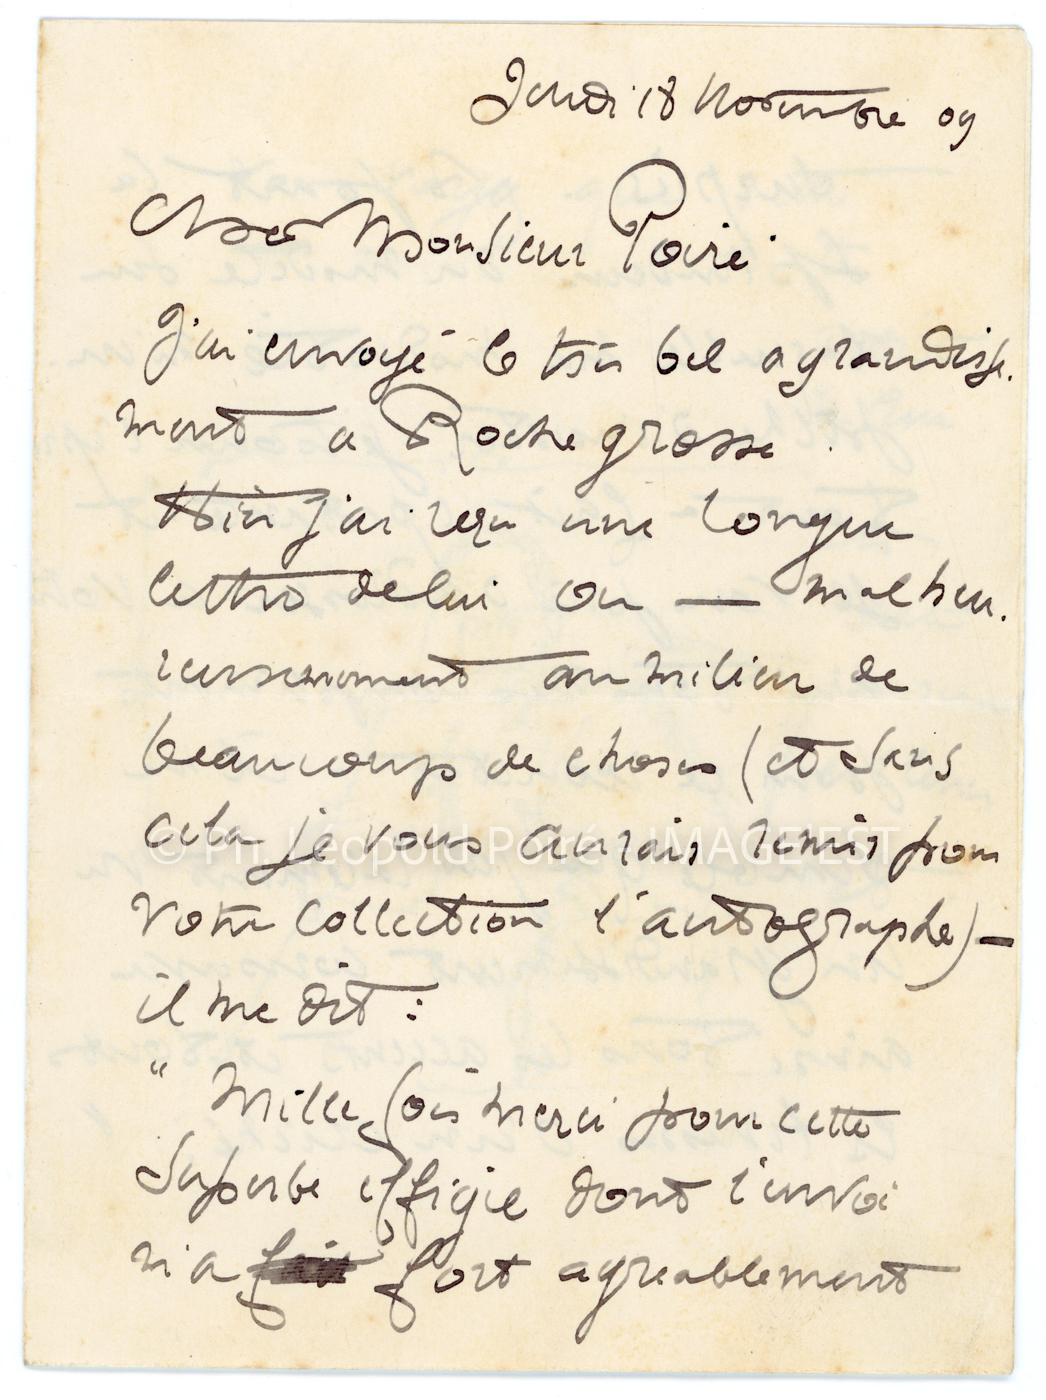 Jeudi 18 Novembre 09
Cher Monsieur Poiré.
J'ai envoyé le très bel agrandisse-
ment a Rochegrosse.
Hier j'ai reçu une longue
lettre de lui ou — malheu-
reusement au milieu de
beaucoup de choses (et sans
cela je vous aurais remis pour
© Ph. Léopold Poiré - IMAGE'EST
votre collection l'autographe) —
il me dit :
" Mille fois merci pour cette
superbe effigie dont l'envoi
m'a fait fort agréablement